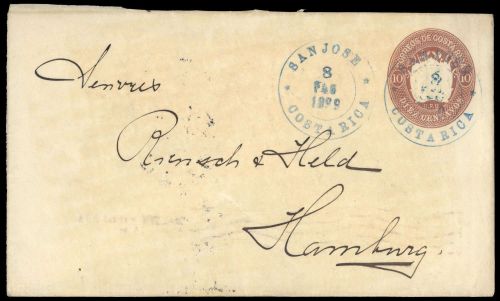 SAN JOSE
8
FEB
1899
COSTA RICA
CORREOS DE COSTA RICA
10 10
DIEZ CENTAVOS
8
COSTA RICA
Rensch & Held
Hamburg.